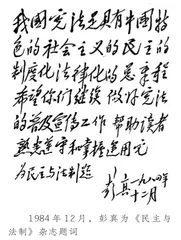 我国宪法是具有中国特
色的社会主义的民主的
制度化法律化的总章程
希望你们继续做好宪法
的普及宣传工作帮助读者
熟悉遵守和掌握运用它
为民主与法制题
彭真一九八四年
十二月
1984年12月，彭真为《民主与
法制》杂志题词